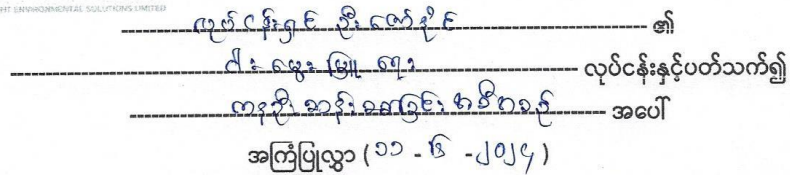 HT ENVIRONMENTAL SOLUTIONS LIMITED
လုပ်ငန်းရှင် ဦးဇော်နိုင် ၏
ငါး မွေး မြူ ရေး လုပ်ငန်းနှင့်ပတ်သက်၍
ကနဦး ဆန်းစစ်ခြင်း အစီရင်ခံစာ အပေါ်
အကြံပြုလွှာ (၁၁ - ၆ - ၂၀၂၄)